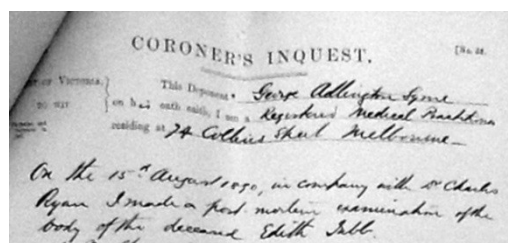 CORONER'S INQUEST.
[No. 28.
OF VICTORIA,
TO WIT
This Deponent George Adlington Syme
on his oath saith, I am a Registered Medical Practitioner
residing at 74 Collins Street Melbourne
On the 15th August 1890, in company with Dr Charles
Ryan I made a post mortem examination of the
body of the deceased Edith Tubb.